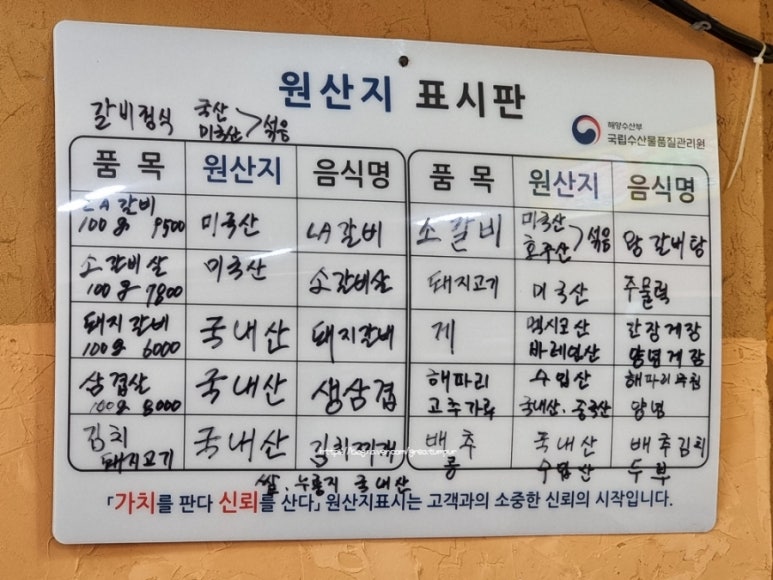 원산지 표시판
갈비정식 국산 미국산 > 섞음
해양수산부
국립수산물품질관리원
품 목 원산지 음식명
LA갈비 100g 9500 미국산 LA갈비
소갈비살 100g 7800 미국산 소갈비살
돼지갈비 100g 6000 국내산 돼지갈비
삼겹살 100g 8000 국내산 생삼겹
김치 돼지고기 국내산 김치찌개
품 목 원산지 음식명
소갈비 미국산 호주산 > 섞음 왕갈비탕
돼지고기 미국산 주물럭
게 멕시코산 바레인산 간장게장 양념게장
해파리 수입산 해파리무침
고추가루 국내산. 중국산 양념
배추 국내산 배추김치
콩 수입산 두부
쌀. 누룽지 국내산
「가치를 판다 신뢰를 산다」 원산지표시는 고객과의 소중한 신뢰의 시작입니다.